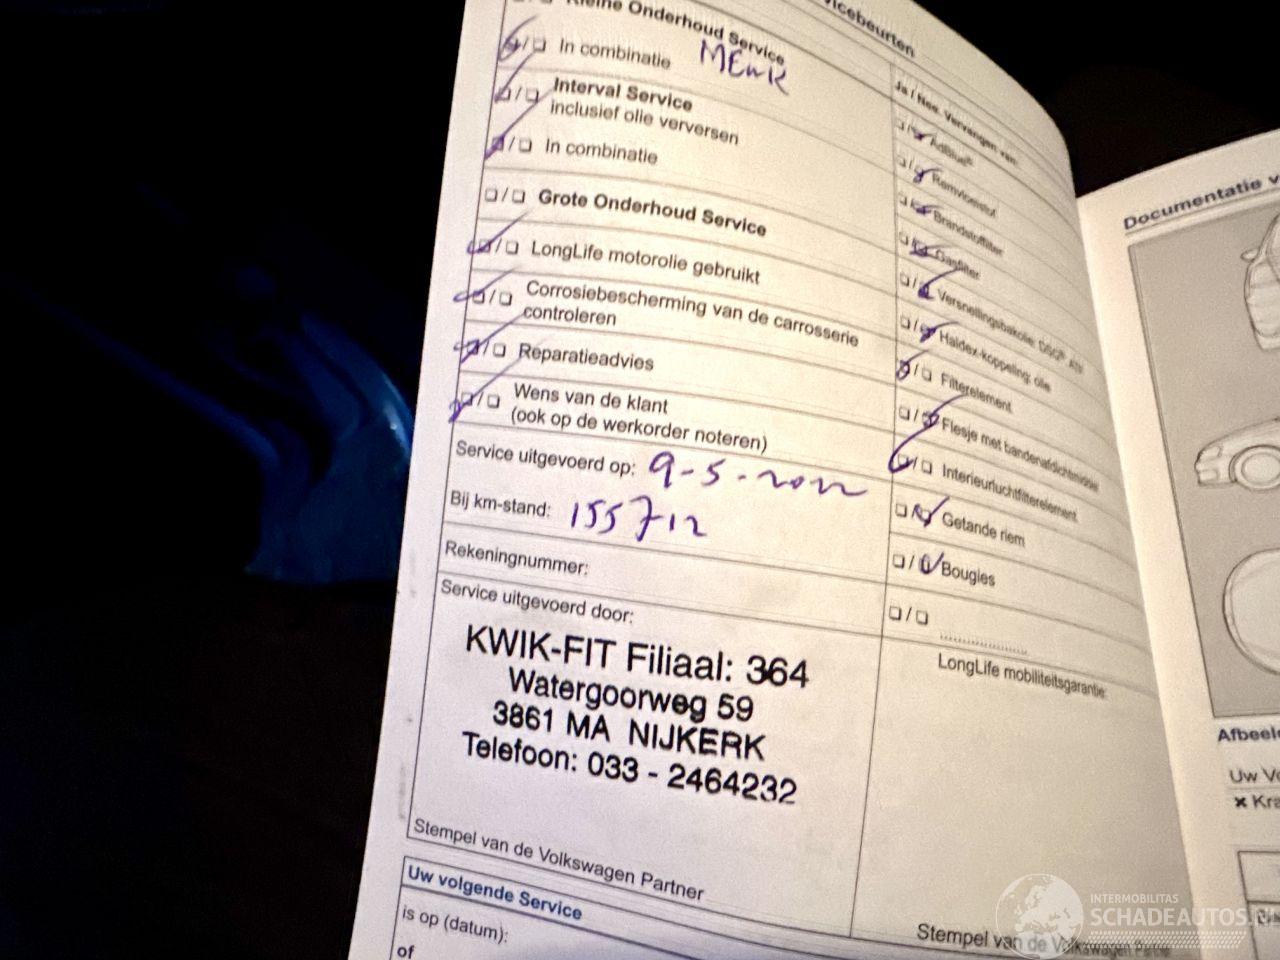 Kleine Onderhoud Service
In combinatie
Interval Service
inclusief olie verversen
In combinatie
Grote Onderhoud Service
LongLife motorolie gebruikt
Corrosiebescherming van de carrosserie
controleren
Reparatieadvies
Wens van de klant
(ook op de werkorder noteren)
Service uitgevoerd op: 9-5-2022
Bij km-stand: 155712
Rekeningnummer:
Service uitgevoerd door:
KWIK-FIT Filiaal: 364
Watergoorweg 59
3861 MA NIJKERK
Telefoon: 033 - 2464232
Stempel van de Volkswagen Partner
Uw volgende Service
is op (datum):
of
Ja / Nee, Vervangen van:
AdBlue®
Remvloeistof
Brandstoffilter
Gasfilter
Versnellingsbakolie: DSG®
Haldex-koppeling: olie
Filterelement
Flesje met bandenafdichtmiddel
Interieurluchtfilterelement
Getande riem
Bougies
LongLife mobiliteitsgarantie:
Stempel van de Volkswagen Partner
Documentatie
Uw
INTERMOBILITAS
SCHADEAUTOS.NL